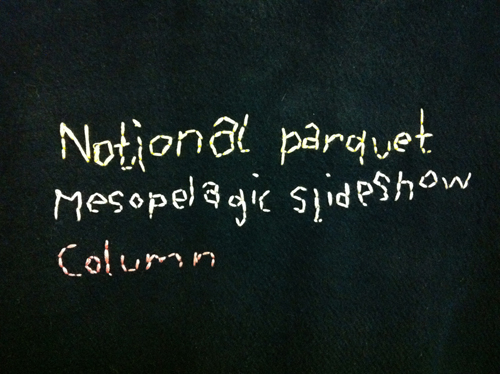 Notional parquet
Mesopelagic slideshow
Column